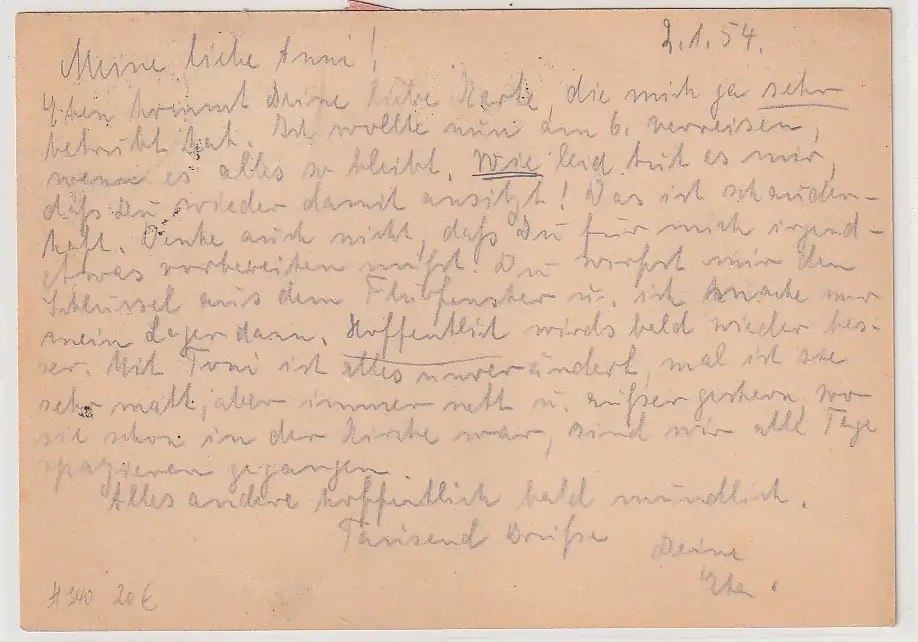 2.1.54.
Meine liebe Anni!
Eben kommt Deine liebe Karte, die mich ja sehr
betrübt hat. Ich wollte nun am 6. verreisen,
wenn es alles so bleibt. Wie leid tut es mir,
daß Du wieder damit ansitzt! Das ist schauder-
haft. Denke auch nicht, daß Du für mich irgend-
etwas vorbereiten mußt. Du wirfst mir den
Schlüssel aus dem Flurfenster u. ich mache mir
mein Lager dann. Hoffentlich wirds bald wieder bes-
ser. Mit Toni ist alles unverändert, mal ist sie
sehr matt, aber immer nett u. außer gestern, wo
sie schon in der Kirche war, sind wir alle Tage
spazieren gegangen.
Alles andere hoffentlich bald mündlich.
Tausend Grüße
Deine
H 340 20 €